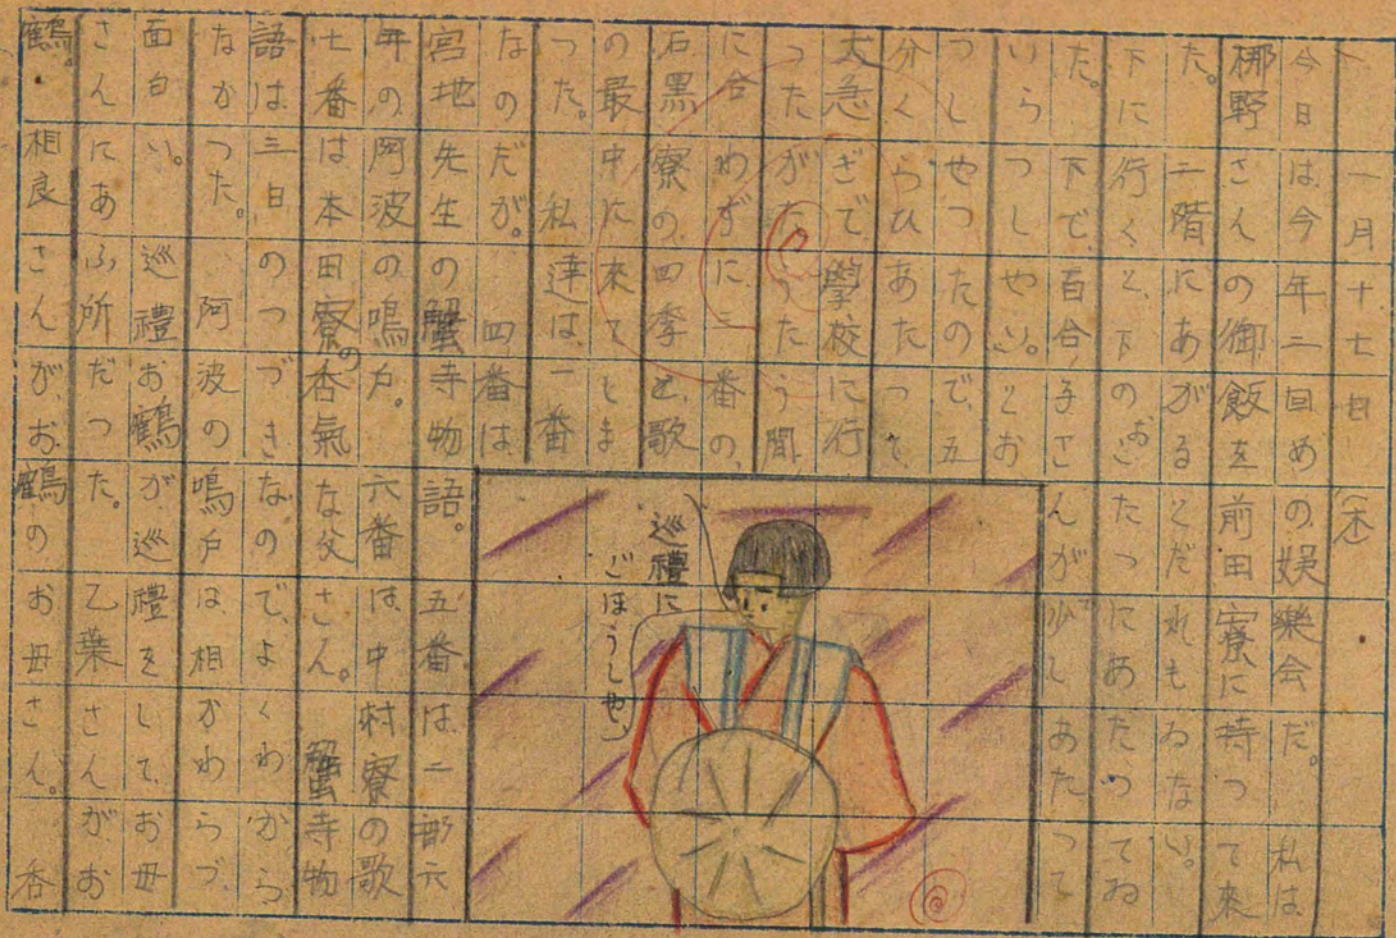 一月十七日 (木)
今日は今年二回めの娯樂会だ。 私は
梛野さんの御飯を前田寮に持つて來
た。 二階にあがるとだれもゐない。
下に行くと、下のおこたつにあたつてゐ
た。 下で、百合子さんが少しあたつて
いらつしやい。とお
つしやつたので、五
分くらひあたつて、
大急ぎで、學校に行
つたがたうたう間
に合わずに、二番の、
石黒寮の四季と、歌
の最中に來てしま
つた。 私達は、一番
なのだが。 四番は
宮地先生の蟹寺物語。 五番は二部六
年の阿波の鳴戸。 六番は、中村寮の歌
七番は本田寮の呑氣な父さん。 蟹寺物
語は三日のつづきなのでよくわから
なかつた。 阿波の鳴戸は、相かわらづ、
面白い。 巡禮お鶴が、巡禮をして、お母
さんにあふ所だつた。 乙葉さんが、お
鶴。 相良さんが、お鶴の、お母さん。 呑
巡禮に
ごほうしやい